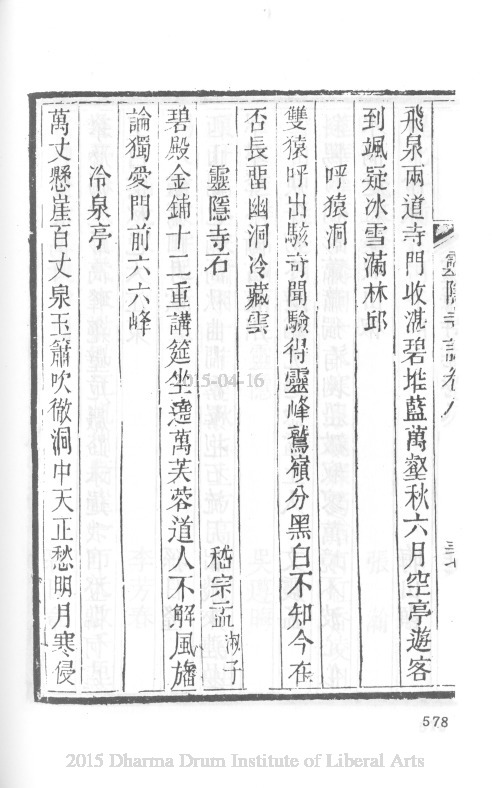 靈隱寺誌卷八
飛泉兩道寺門收湛碧堆藍萬壑秋六月空亭遊客
到颯疑冰雪滿林邱
呼猿洞
雙猿呼出駭奇聞驗得靈峰鷲嶺分黑白不知今在
否長畱幽洞冷藏雲
靈隱寺石 嵇宗孟 淑子
碧殿金鋪十二重講筵坐遶萬芙蓉道人不解風旛
論獨愛門前六六峰
冷泉亭
萬丈懸崖百丈泉玉簫吹徹洞中天正愁明月寒侵
2015-04-16
578
2015 Dharma Drum Institute of Liberal Arts